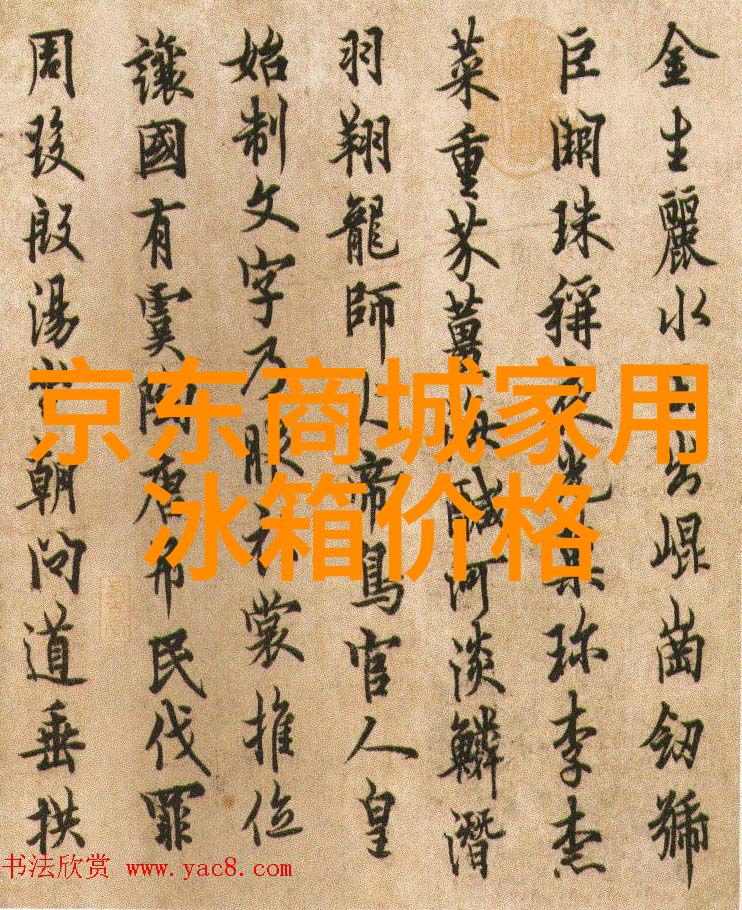 金生麗水出崐崗劒號
巨闕珠稱夜光菓珎李柰
菜重芥薑海醎河淡鱗潛
羽翔龍師火帝鳥官人皇
始制文字乃服衣裳推位
讓國有虞陶唐弔民伐罪
周發殷湯坐朝問道垂拱
京东商城家用
冰箱价格
书法欣赏 www.yac8.com